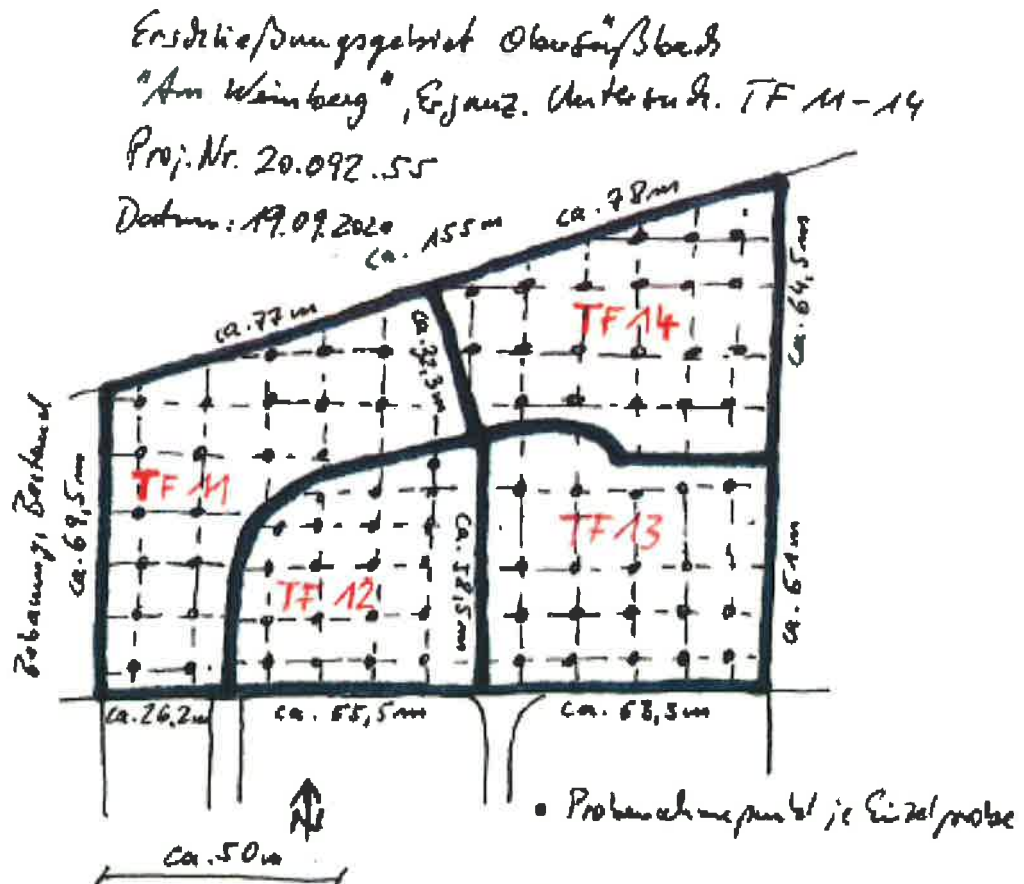 Erschließungsgebiet Obersüßbach
"Am Weinberg", Ergänz. Untersuch. TF 11-14
Proj. Nr. 20.092.55
Datum: 19.09.2020
ca. 155 m
ca. 78 m
ca. 77 m
ca. 64,5 m
TF 14
ca. 32,3 m
Bebauung, Bestand
ca. 69,5 m
TF 11
TF 13
TF 12
ca. 58,5 m
ca. 61 m
ca. 26,2 m
ca. 55,5 m
ca. 68,5 m
N
• Probenahmepunkt je Einzelprobe
ca. 50 m